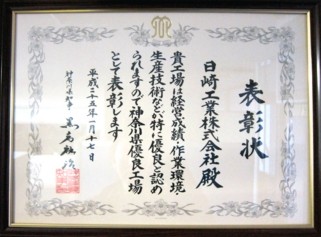 表彰状
日崎工業株式会社殿
貴工場は経営成績、作業環境、
生産技術などが特に優良と認め
られますので神奈川県優良工場
として表彰します
平成二十五年一月十七日
神奈川県知事 黒岩祐治